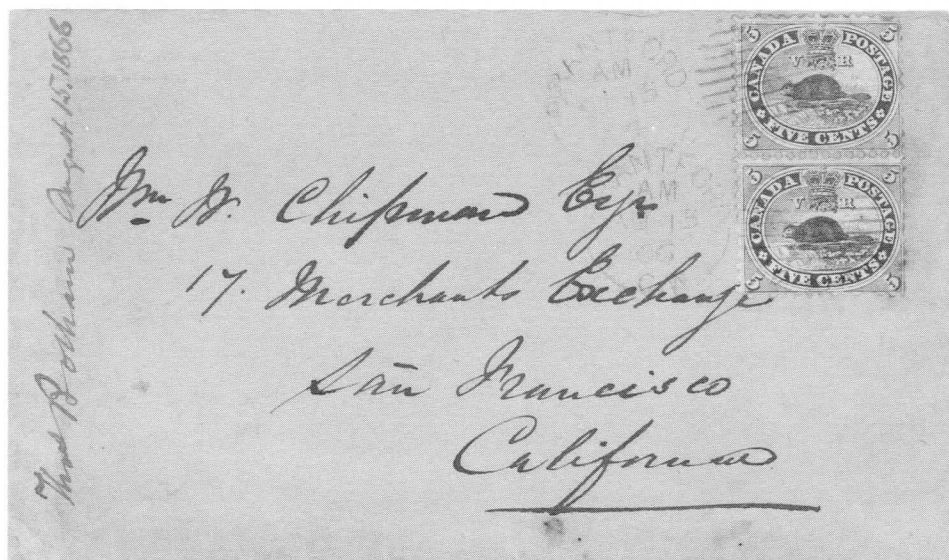 Thos Botham August 15. 1866
5 5
CANADA POSTAGE
V R
FIVE CENTS
5 5
5 5
CANADA POSTAGE
V R
FIVE CENTS
5 5
MA
MA
Wm W. Chipman Esqr
17. Merchants Exchange
San Francisco
California